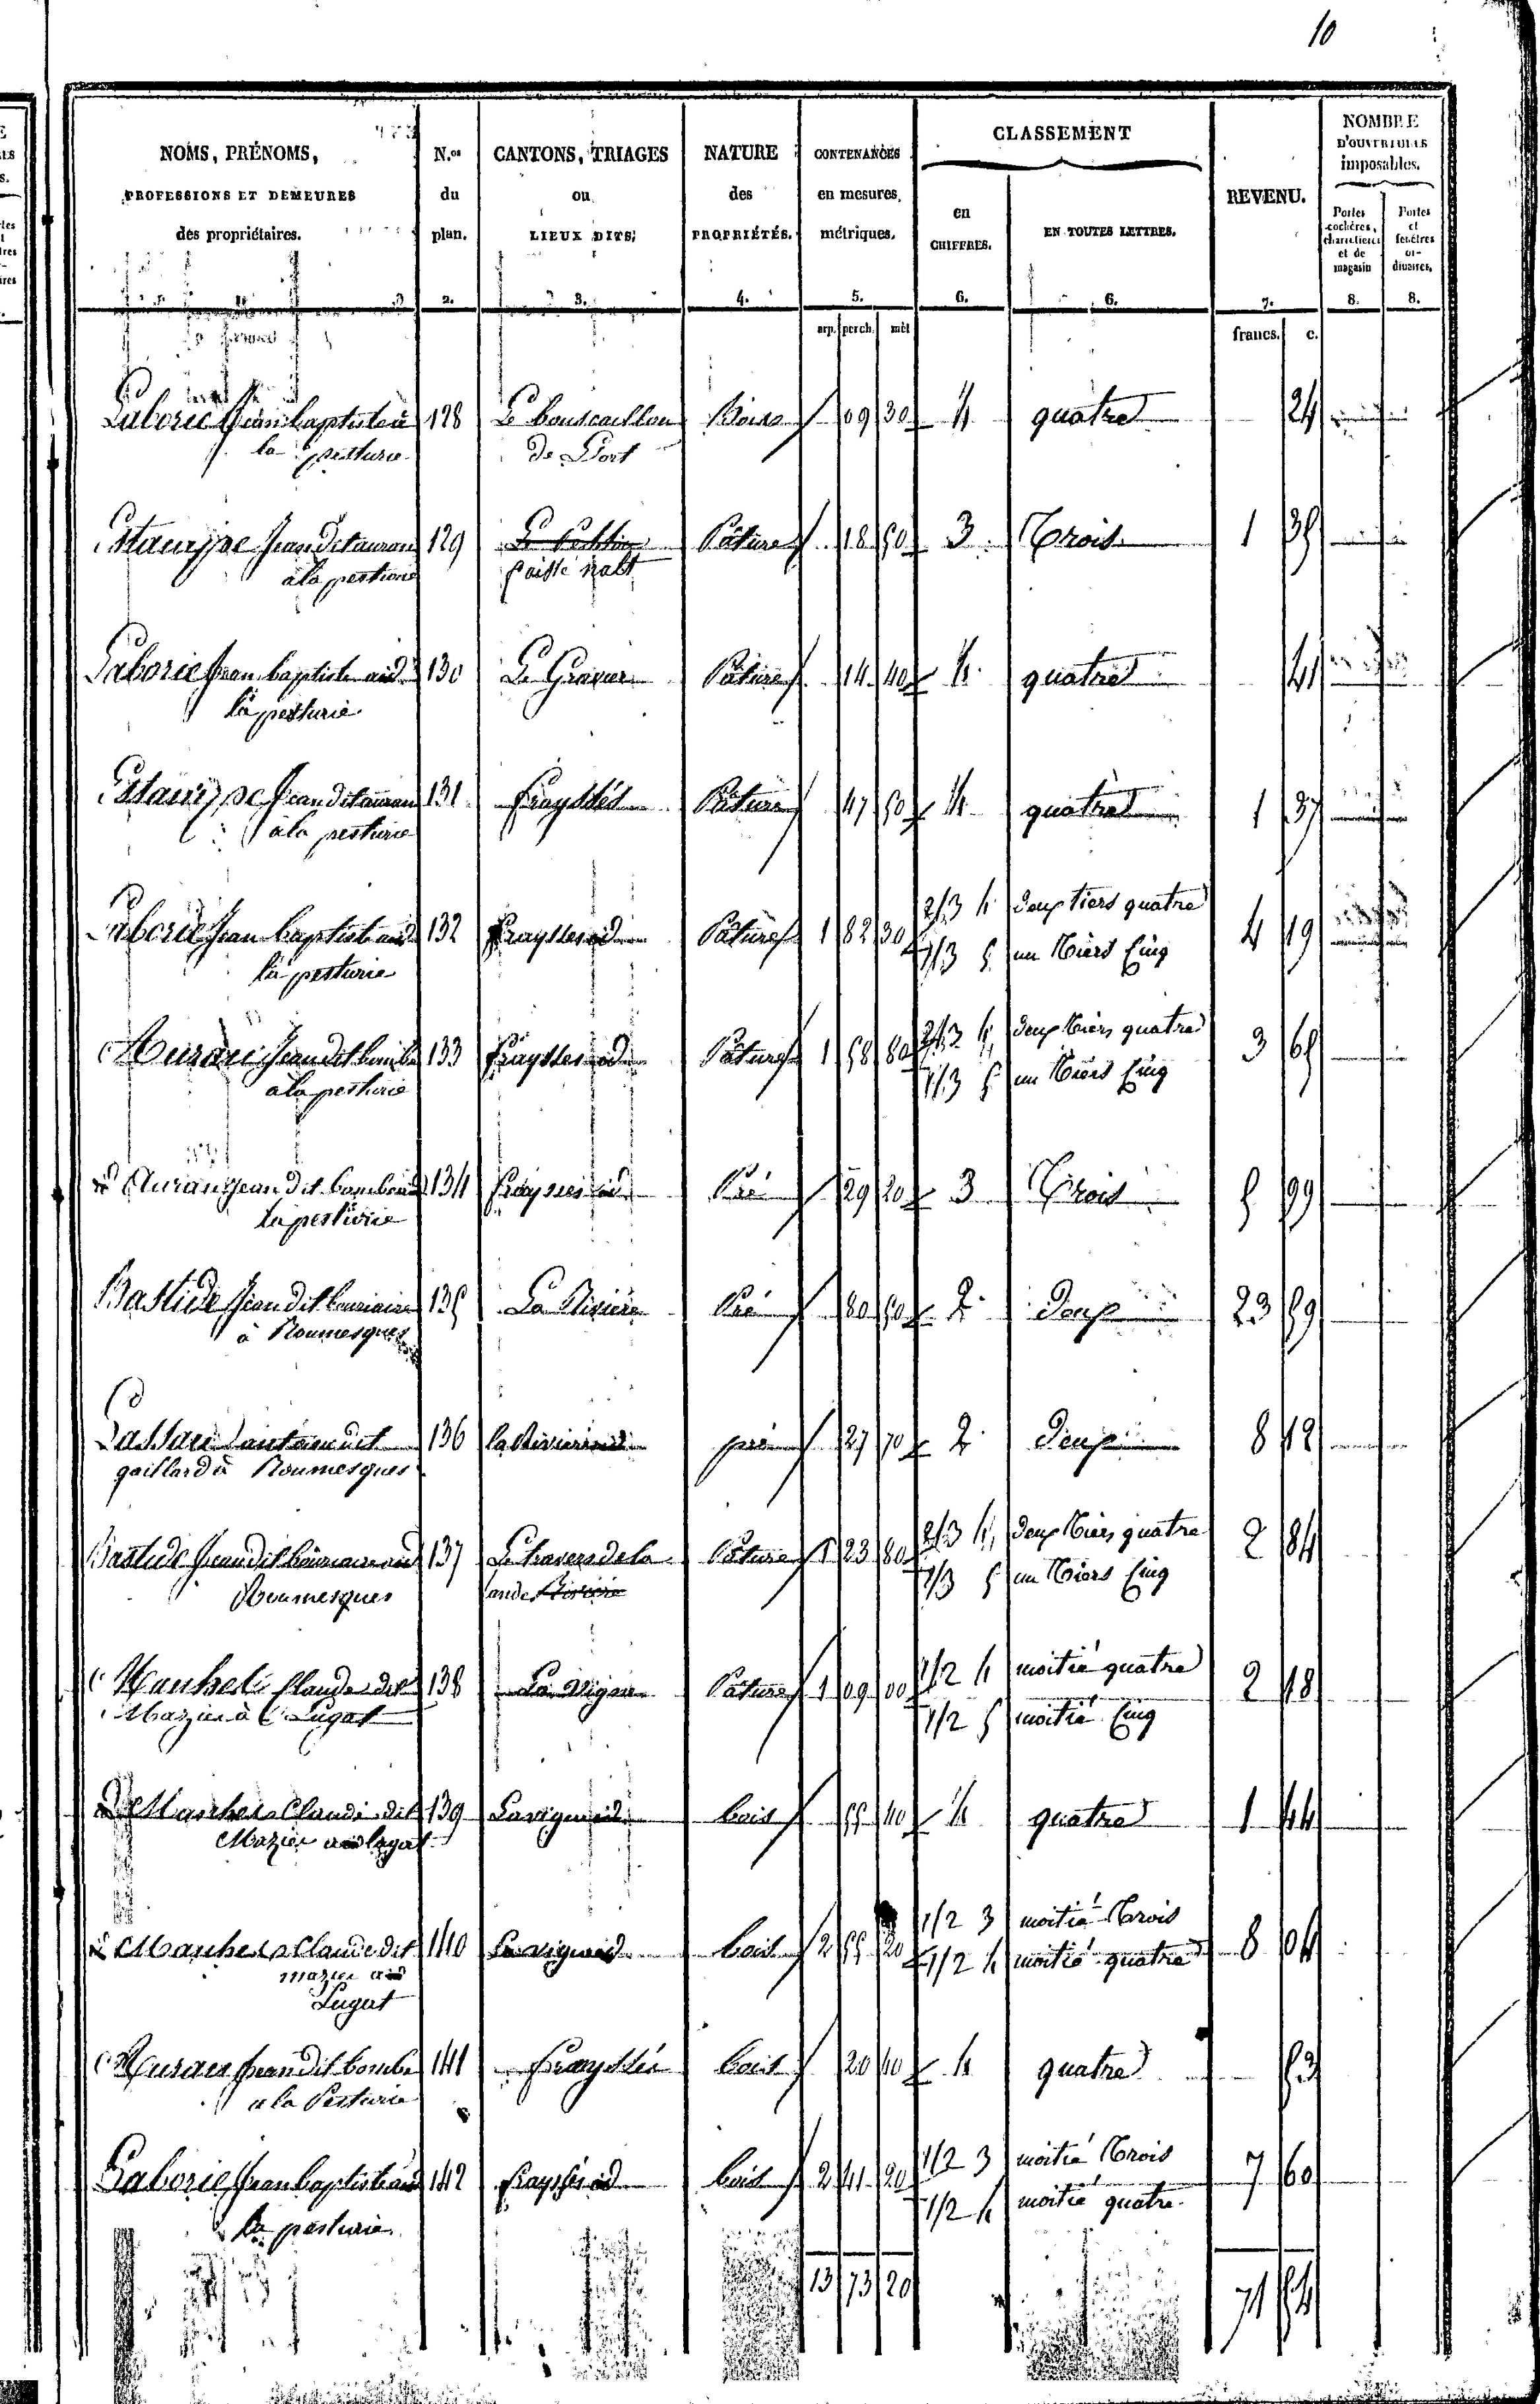 10
NOMS, PRÉNOMS,
PROFESSIONS ET DEMEURES
des propriétaires.
N.os
du
plan.
CANTONS, TRIAGES
ou
LIEUX DITS.
NATURE
des
PROPRIÉTÉS.
CONTENANCES
en mesures
métriques.
CLASSEMENT
en
CHIFFRES.
EN TOUTES LETTRES.
REVENU.
NOMBRE
D'OUVERTURES
imposables.
Portes
cochères,
charretières
et de
magasin
Portes
et
fenêtres
or-
dinaires.
2. 3. 4. 5. 6. 6. 7. 8. 8.
arp. perch. mèt francs. c.
Laborie Jean baptiste à 128 Le bouscaillou Bois 09 30 4 quatre 24
la pesturie de Port
Jean dit auran 129 Pâture 18 50 3 Trois 1 35
à la pesturie
Laborie Jean baptiste 130 Le Gravier Pâture 14 40 4 quatre 41
la pesturie
Jean dit auran 131 frayssés Pâture 47 50 4 quatre 1 37
à la pesturie
Laborie Jean baptiste 132 frayssés id Pâture 1 82 30 2/3 4 deux tiers quatre 4 19
la pesturie 1/3 5 un tiers Cinq
Jean dit bombe 133 frayssés id Pâture 1 58 80 2/3 4 deux tiers quatre 3 65
à la pesturie 1/3 5 un tiers Cinq
Jean dit bombe 134 frayssés id Pré 29 20 3 Trois 5 99
la pesturie
Bastide Jean dit 135 La Rivière Pré 80 50 2 deux 23 59
à Roumesques
antoine dit 136 la Rivière id pré 27 70 2 deux 8 12
gaillard à Roumesques
Bastide Jean dit 137 Le travers de la Pâture 1 23 80 2/3 4 deux tiers quatre 2 84
Roumesques Rivière 1/3 5 un tiers Cinq
Claude dit 138 La Vigne Pâture 1 09 00 1/2 4 moitié quatre 2 18
Mazier à Lugat 1/2 5 moitié Cinq
Claude dit 139 La vigne id bois 55 40 4 quatre 1 44
Mazier
Claude dit 140 La vigne id bois 2 55 20 1/2 3 moitié Trois 8 04
mazier 1/2 4 moitié quatre
Lugat
Jean dit bombe 141 frayssés bois 20 40 4 quatre 53
a la Pesturie
Laborie Jean baptiste 142 frayssés id bois 2 41 20 1/2 3 moitié Trois 7 60
la pesturie 1/2 4 moitié quatre
13 73 20 71 54